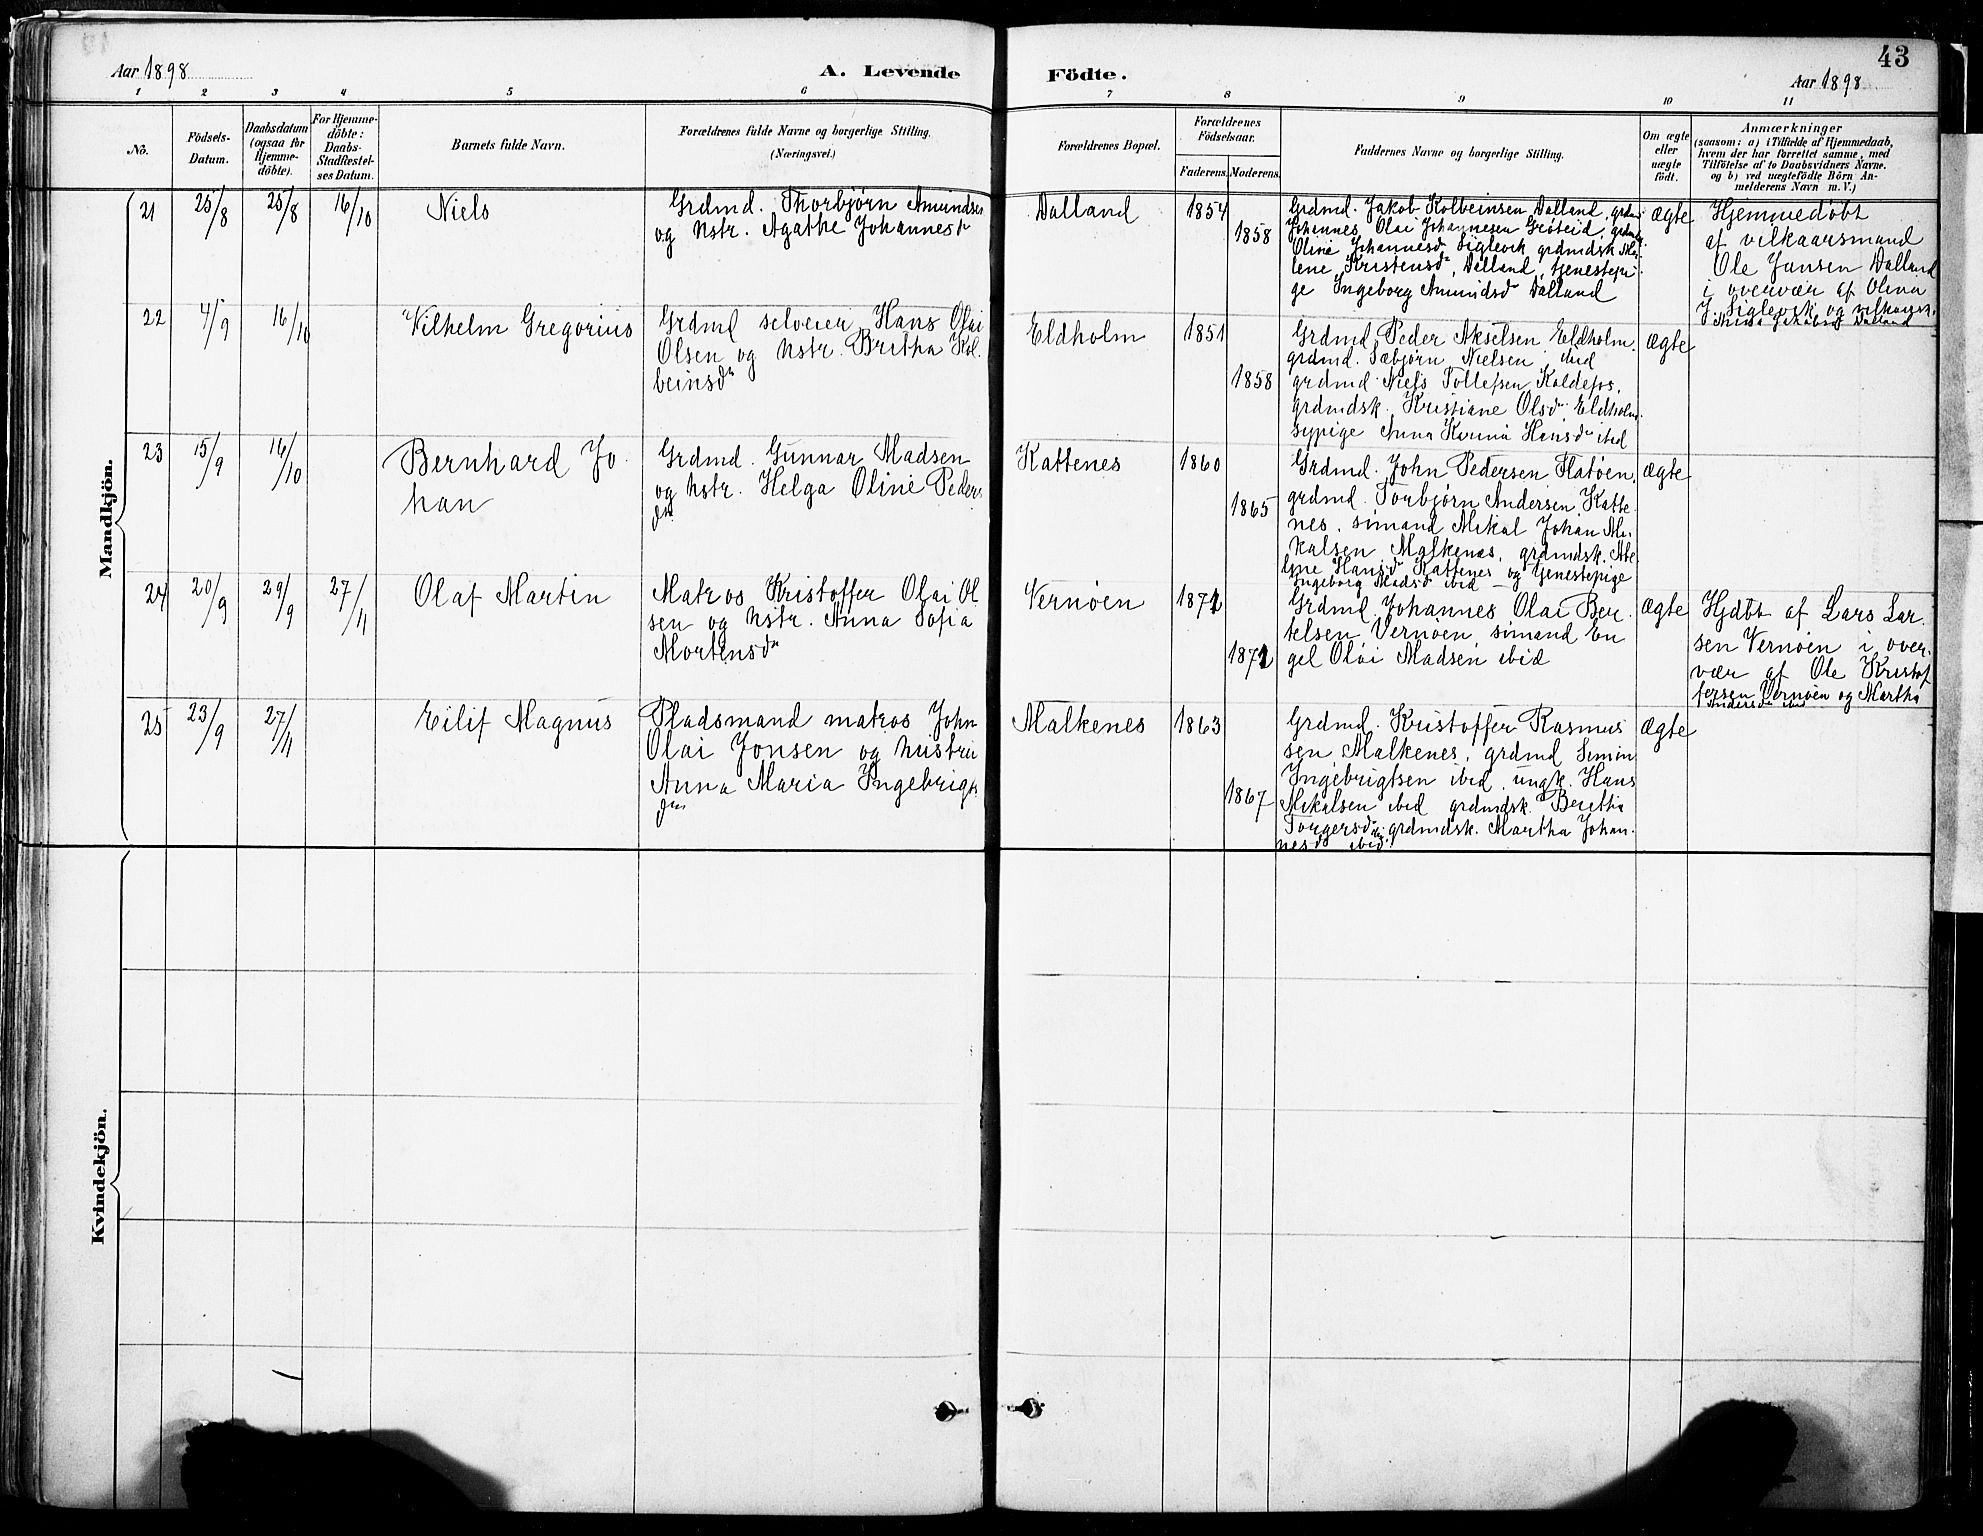 43
Aar 1898
A. Levende Födte.
Aar 1898
1 2 3 4 5 6 7 8 9 10 11
No.
Födsels-
Datum.
Daabsdatum
(ogsaa for
Hjemme-
döbte).
For Hjemme-
döbte:
Daabs-
Stadfæstel-
ses Datum.
Barnets fulde Navn.
Forældrenes fulde Navne og borgerlige Stilling.
(Næringsvei.)
Forældrenes Bopæl.
Forældrenes
Födselsaar.
Faderens.
Moderens.
Faddernes Navne og borgerlige Stilling.
Om ægte
eller
uægte
födt.
Anmærkninger
(saasom: a) i Tilfælde af Hjemmedaab,
hvem der har forrettet samme, med
Tilföielse af to Daabsvidners Navne.
og b) ved uægtefödte Börn An-
melderens Navn m. V.)
Mandkjön.
21
25/8
25/8
16/10
Niels
Grdmd. Thorbjørn Amundsen
og hstr. Agathe Johannesdr
Dalland
1854
1858
Grdmd. Jakob Kolbeinsen Dalland, grdmd
Johannes Olai Johannesen Grøteid, grdmdsk.
Oline Johannesd Siglevik grdmdsk Ma-
lene Kristensdr, Dalland, tjenestepi-
ge Ingeborg Amundsdr Dalland
ægte
Hjemmedøbt
af vilkaarsmand
Ole Jansen Dalland
i overvær af Olina
J. Siglevik og vilkaarsk.
Dalland
22
4/9
16/10
Vilhelm Gregorius
Grdmd selveier Hans Olai
Olsen og hstr. Britha Kol-
beinsdr
Eldholm
1851
1858
Grdmd. Peder Akselsen Eldholm.
grdmd. Sæbjørn Nielsen ibid
grdmd Niels Tollefsen Koldefos,
grdmdsk. Kristiane Olsdr Eldholm.
sypige Anna Karina Hansdr ibid
ægte
23
15/9
16/10
Bernhard Jo-
han
Grdmd. Gunnar Madsen
og hstr. Helga Oline Peders
dr.
Kattenes
1860
1865
Grdmd. John Pedersen Flatøen,
grdmd. Torbjørn Andersen Katte-
nes, simand Mikal Johan Mi-
kalsen Malkenes, grdmdsk. Abe-
line Hansdr Kattenes og tjenestepige
Ingeborg Madsd ibid
ægte
24
20/9
29/9
27/11
Olaf Martin
Matros Kristoffer Olai Ol
sen og hstr. Anna Sofia
Mortensdr
Vernøen
1871
1871
Grdmd. Johannes Olai Ber-
telsen Vernøen, simand En
gel Olai Madsen ibid
ægte
Hjdbt af Lars Lar-
sen Vernøen i over-
vær af Ole Kristof
fersen Vernøen og Martha
Andersdr ibid
25
23/9
27/11
Eilif Magnus
Pladsmand matros John
Olai Jonsen og hustru
Anna Maria Ingebrigts
dr.
Malkenes
1863
1867
Grdmd. Kristoffer Rasmus
sen Malkenes, grdmd Simon
Ingebrigtsen ibid, ungk. Hans
Mikalsen ibid grdmdsk. Beritha
Torgersdr ibid, grdmdsk. Martha Johan-
nesdr ibid.
ægte
Kvindekjön.